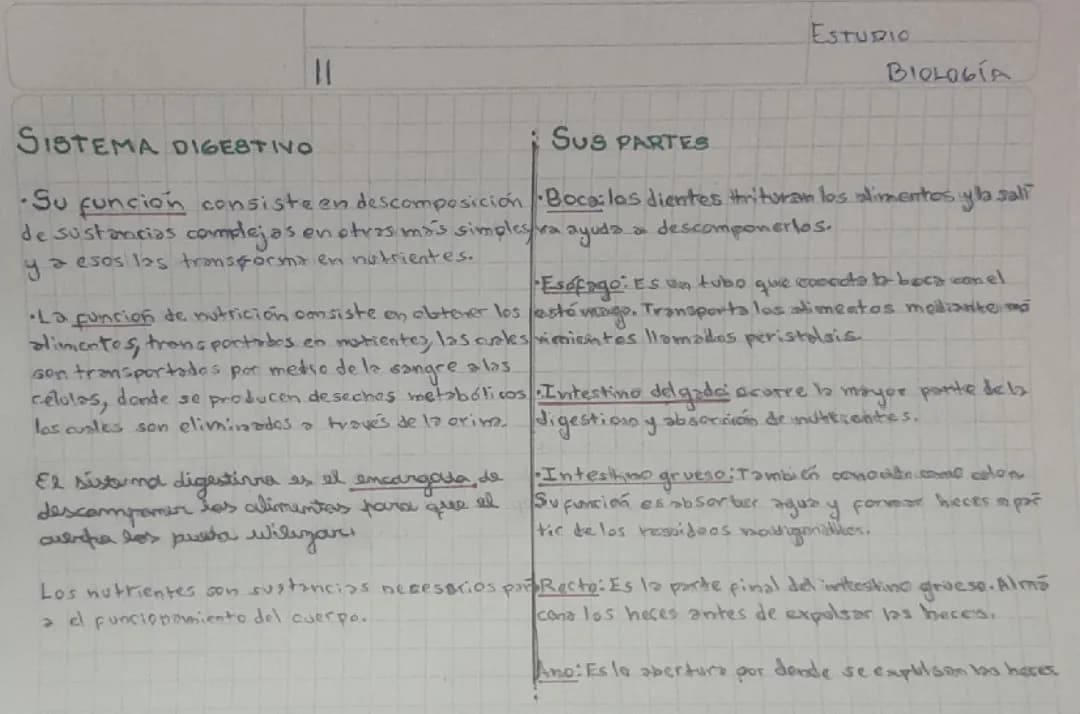 ESTUDIO
11
BIOLOGÍA
SISTEMA DIGESTIVO
•Su función consiste en descomposición
de sustancias complejas en otras más simples
y a esos las transforma en nutrientes.
•La función de nutrición consiste en obtener los
alimentos, transportarlos en nutientes, las cuales
son transportados por medio de la sangre a las
células, donde se producen desechos metabólicos
los cuales son eliminados a través de la orina.
El sistema digestivo es el encargado de
descomponer los alimentos para que el
cuerpo los pueda utilizar.
Los nutrientes son sustancias necesarios par
a el funcionamiento del cuerpo.
SUS PARTES
•Boca: los dientes trituran los alimentos y la sali
va ayuda a descomponerlos.
•Esófago: Es un tubo que conecta la boca con el
estómago. Transporta los alimentos mediante mo
vimientos llamados peristalsis.
•Intestino delgado: ocurre la mayor parte de la
digestion y absorción de nutrientes.
•Intestino grueso: También conocido como colon
Su función es absorber agua y formar heces a par
tir de los residuos
Recto: Es la parte final del intestino grueso. Alma
cena los heces antes de expulsar las heces.
Ano: Es la abertura por donde se expulsan las heces